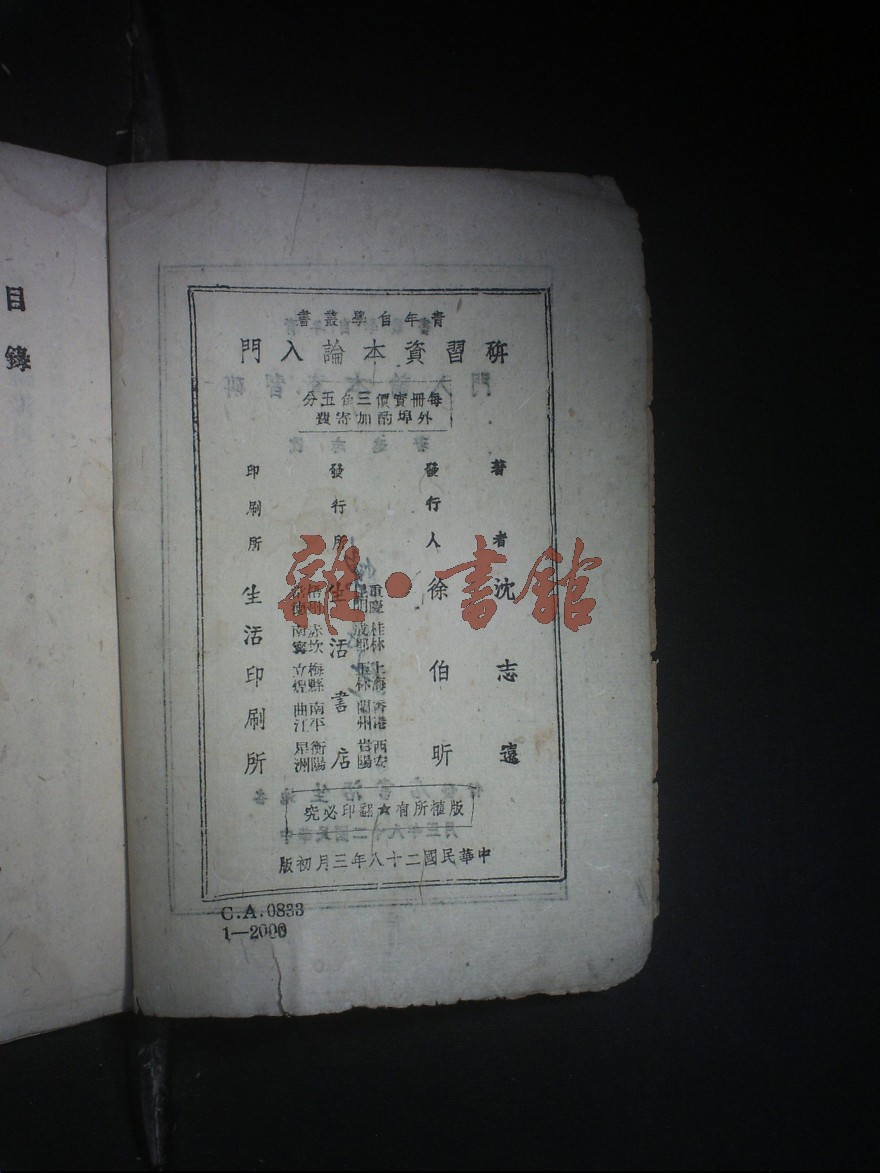 目錄
青年自學叢書
研習資本論入門
每冊實價三角五分
外埠酌加寄費
著者 沈志遠
發行人 徐伯昕
發行所 生活書店
重慶 桂林 上海 香港 西安
昆明 成都 玉林 蘭州 貴陽
梧州 赤坎 梅縣 南平 衡陽
南寧 立煌 曲江 星洲
印刷所 生活印刷所
版權所有☆翻印必究
中華民國二十八年三月初版
C.A.0833
1—2000
雜·書館